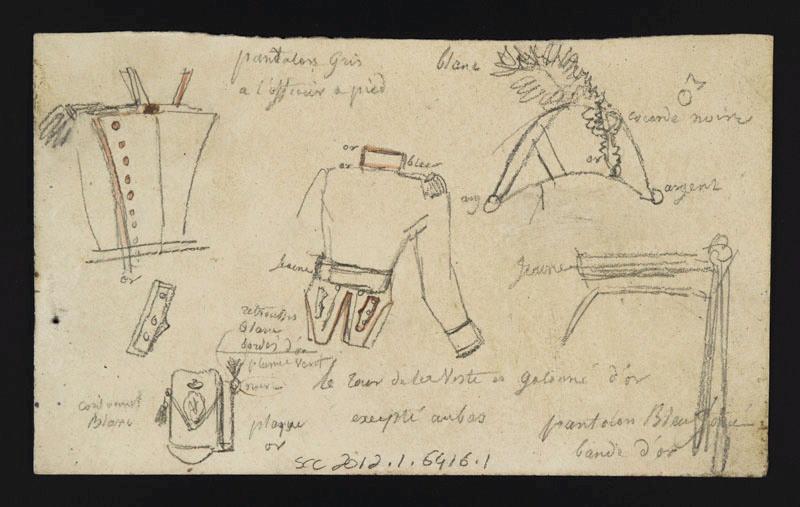 pantalons Gris
a l'officier a pied
blanc
cocarde noire
or
or
bleu
or
arg
argent
or
jeaune
jeaune
retroussis
blanc
bordés d'or
plumet vert
noir
cordonnet
Blanc
plaque
or
le tour de la Veste es galonné d'or
excepté au bas
pantalon Bleu foncé
bande d'or
scc 2012.1.6416.1